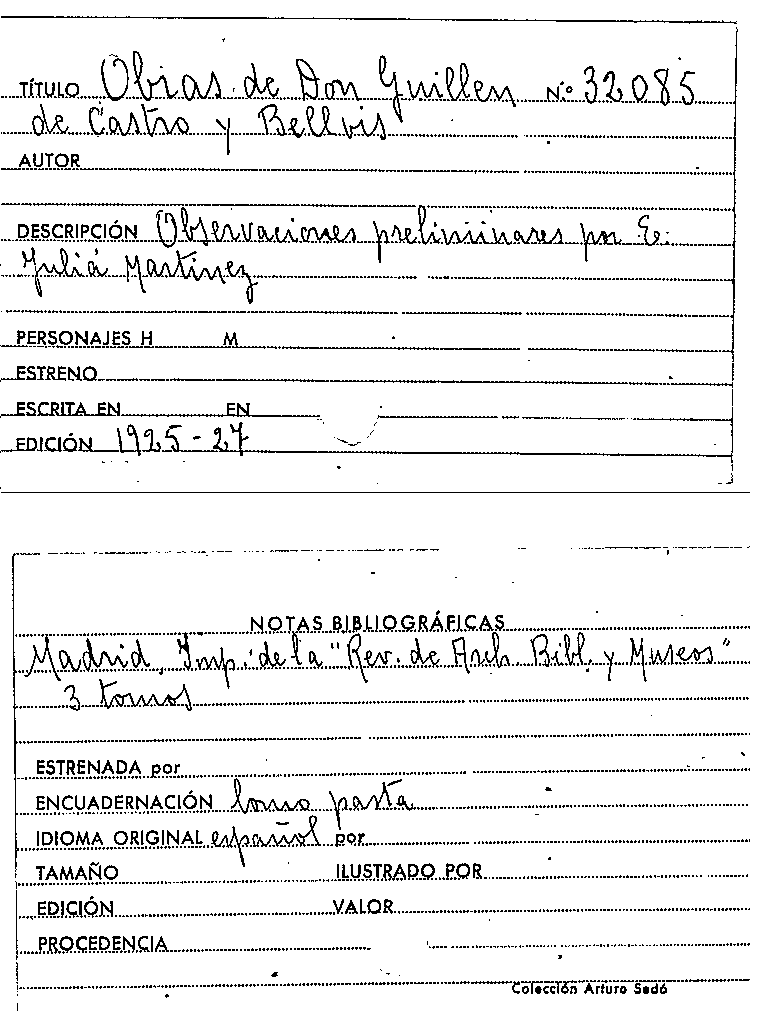 TÍTULO Obras de Don Guillen Nº 32085
de Castro y Bellvis
AUTOR
DESCRIPCIÓN Observaciones preliminares por E.
Juliá Martínez
PERSONAJES H M
ESTRENO
ESCRITA EN EN
EDICIÓN 1925-27
NOTAS BIBLIOGRÁFICAS
Madrid, Imp. de la "Rev. de Arch. Bibl. y Museos"
3 tomos
ESTRENADA por
ENCUADERNACIÓN lomo pasta
IDIOMA ORIGINAL español por
TAMAÑO ILUSTRADO POR
EDICIÓN VALOR
PROCEDENCIA
Colección Arturo Sedó